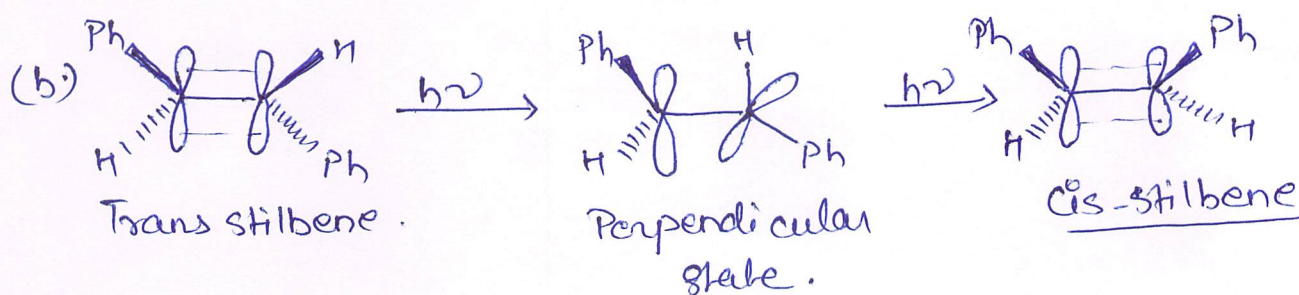 (b.) Ph H H Ph Trans stilbene.
hν
Ph H H Ph Perpendicular state.
hν
Ph Ph H H Cis-stilbene